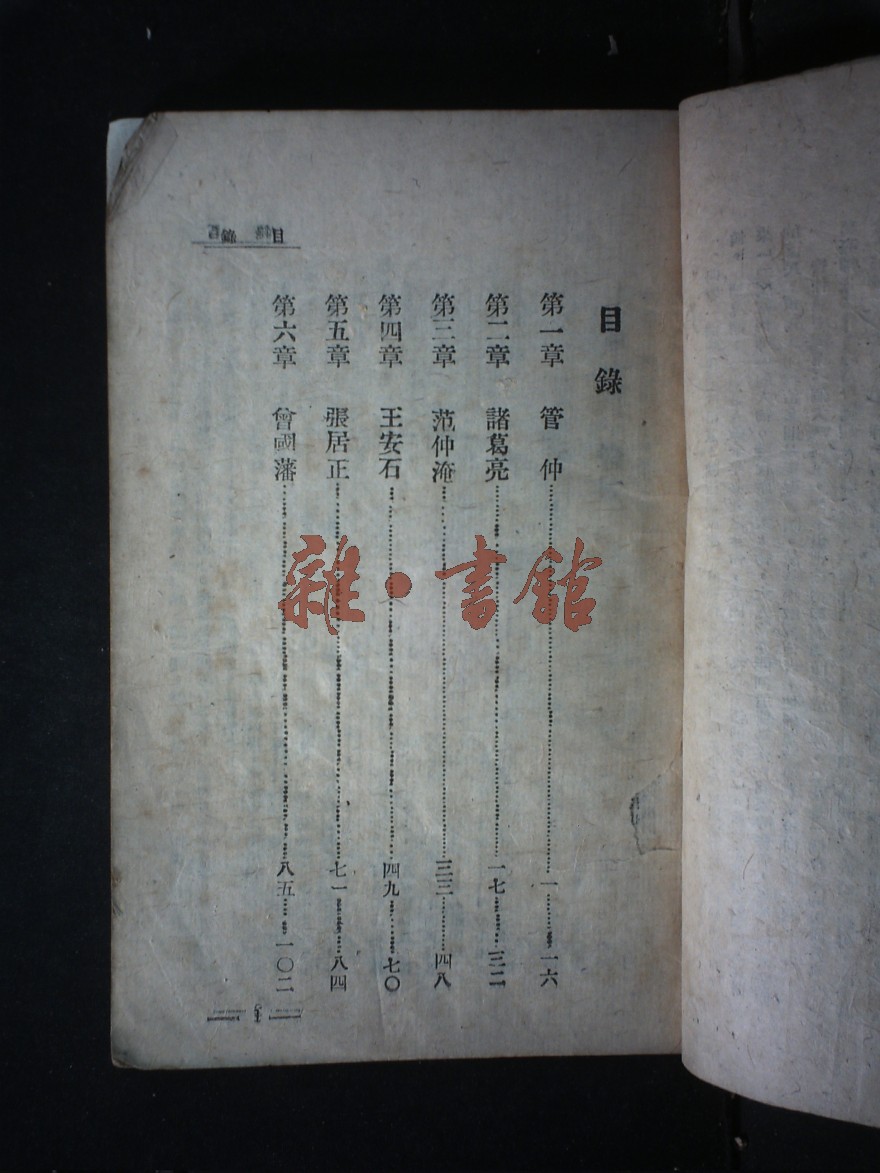 目錄
目錄
第一章 管仲……一……一六
第二章 諸葛亮……一七……三二
第三章 范仲淹……三三……四八
第四章 王安石……四九……七〇
第五章 張居正……七一……八四
第六章 曾國藩……八五……一〇二
雜·書館